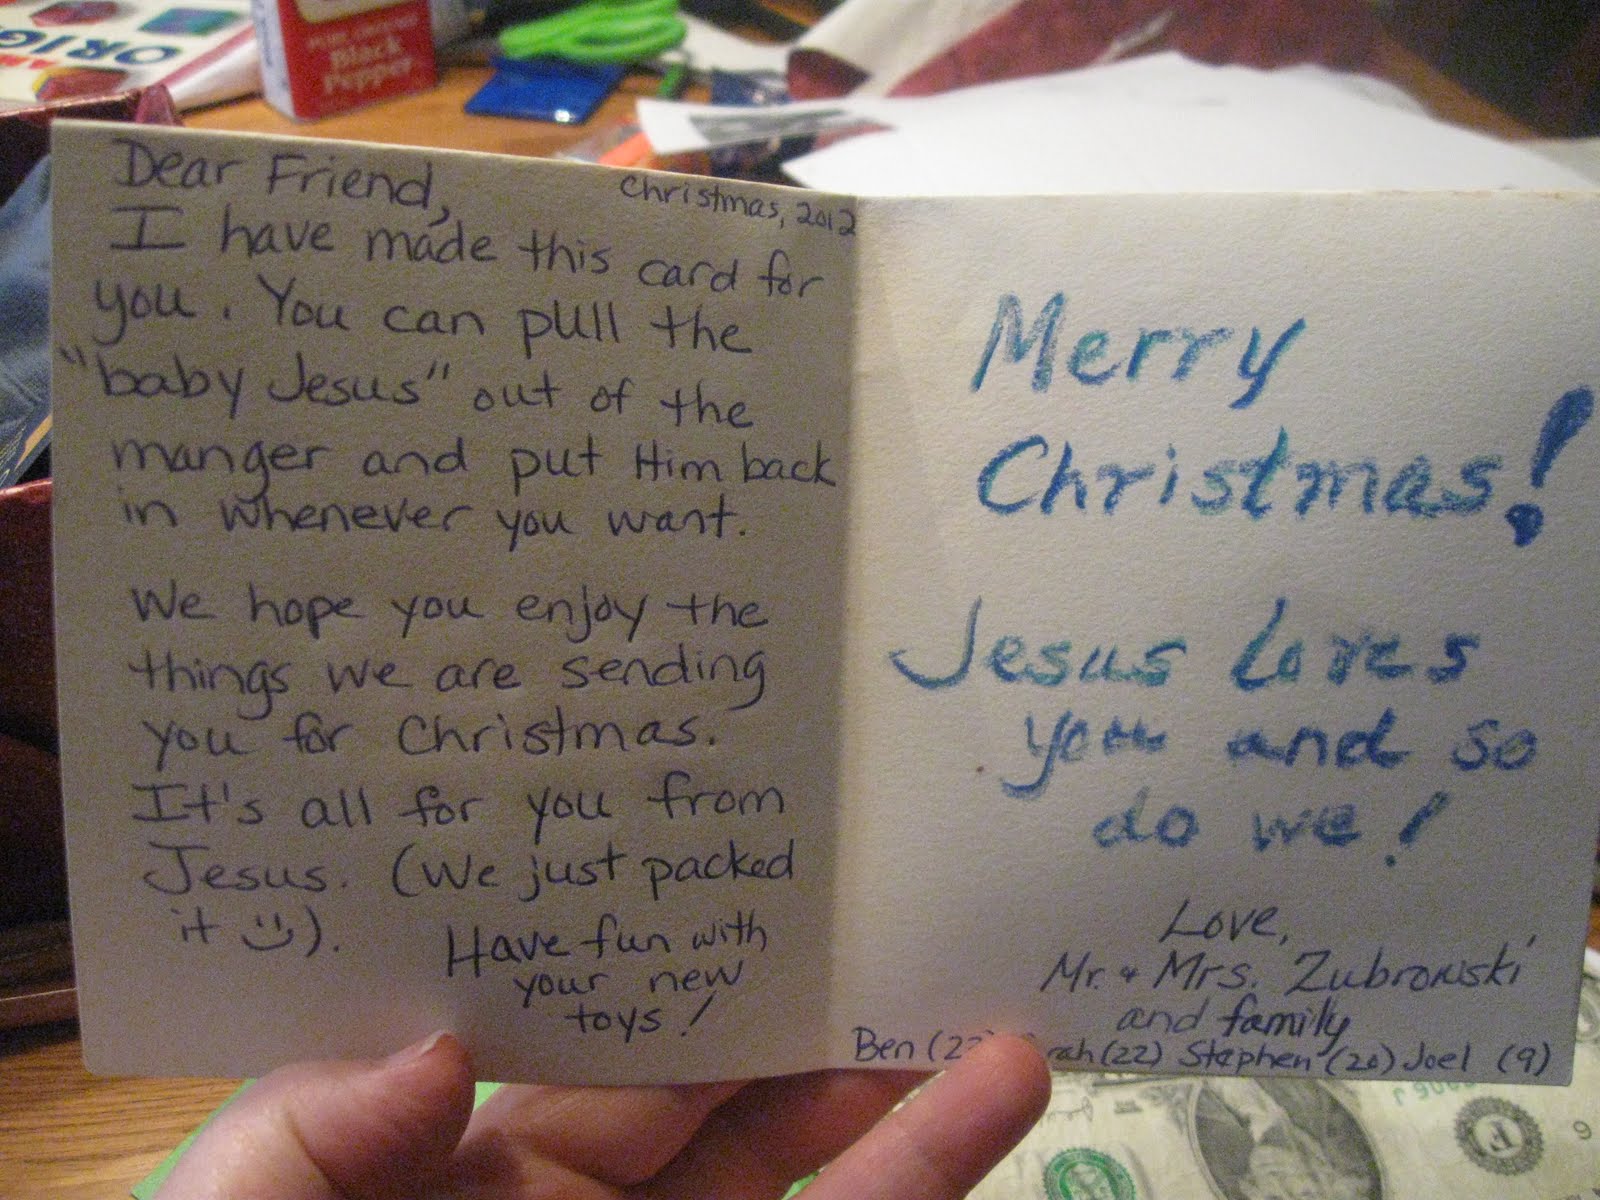 ORIG
PURE GROUND
Black
Pepper
Dear Friend,
Christmas, 2012
I have made this card for
you. You can pull the
"baby Jesus" out of the
manger and put Him back
in whenever you want.
We hope you enjoy the
things we are sending
you for Christmas.
It's all for you from
Jesus. (We just packed
it :)).
Have fun with
your new
toys!
Merry
Christmas!
Jesus loves
you and so
do we!
Love,
Mr. + Mrs. Zubrowski
and family
Ben (22) rah (22) Stephen (20) Joel (9)